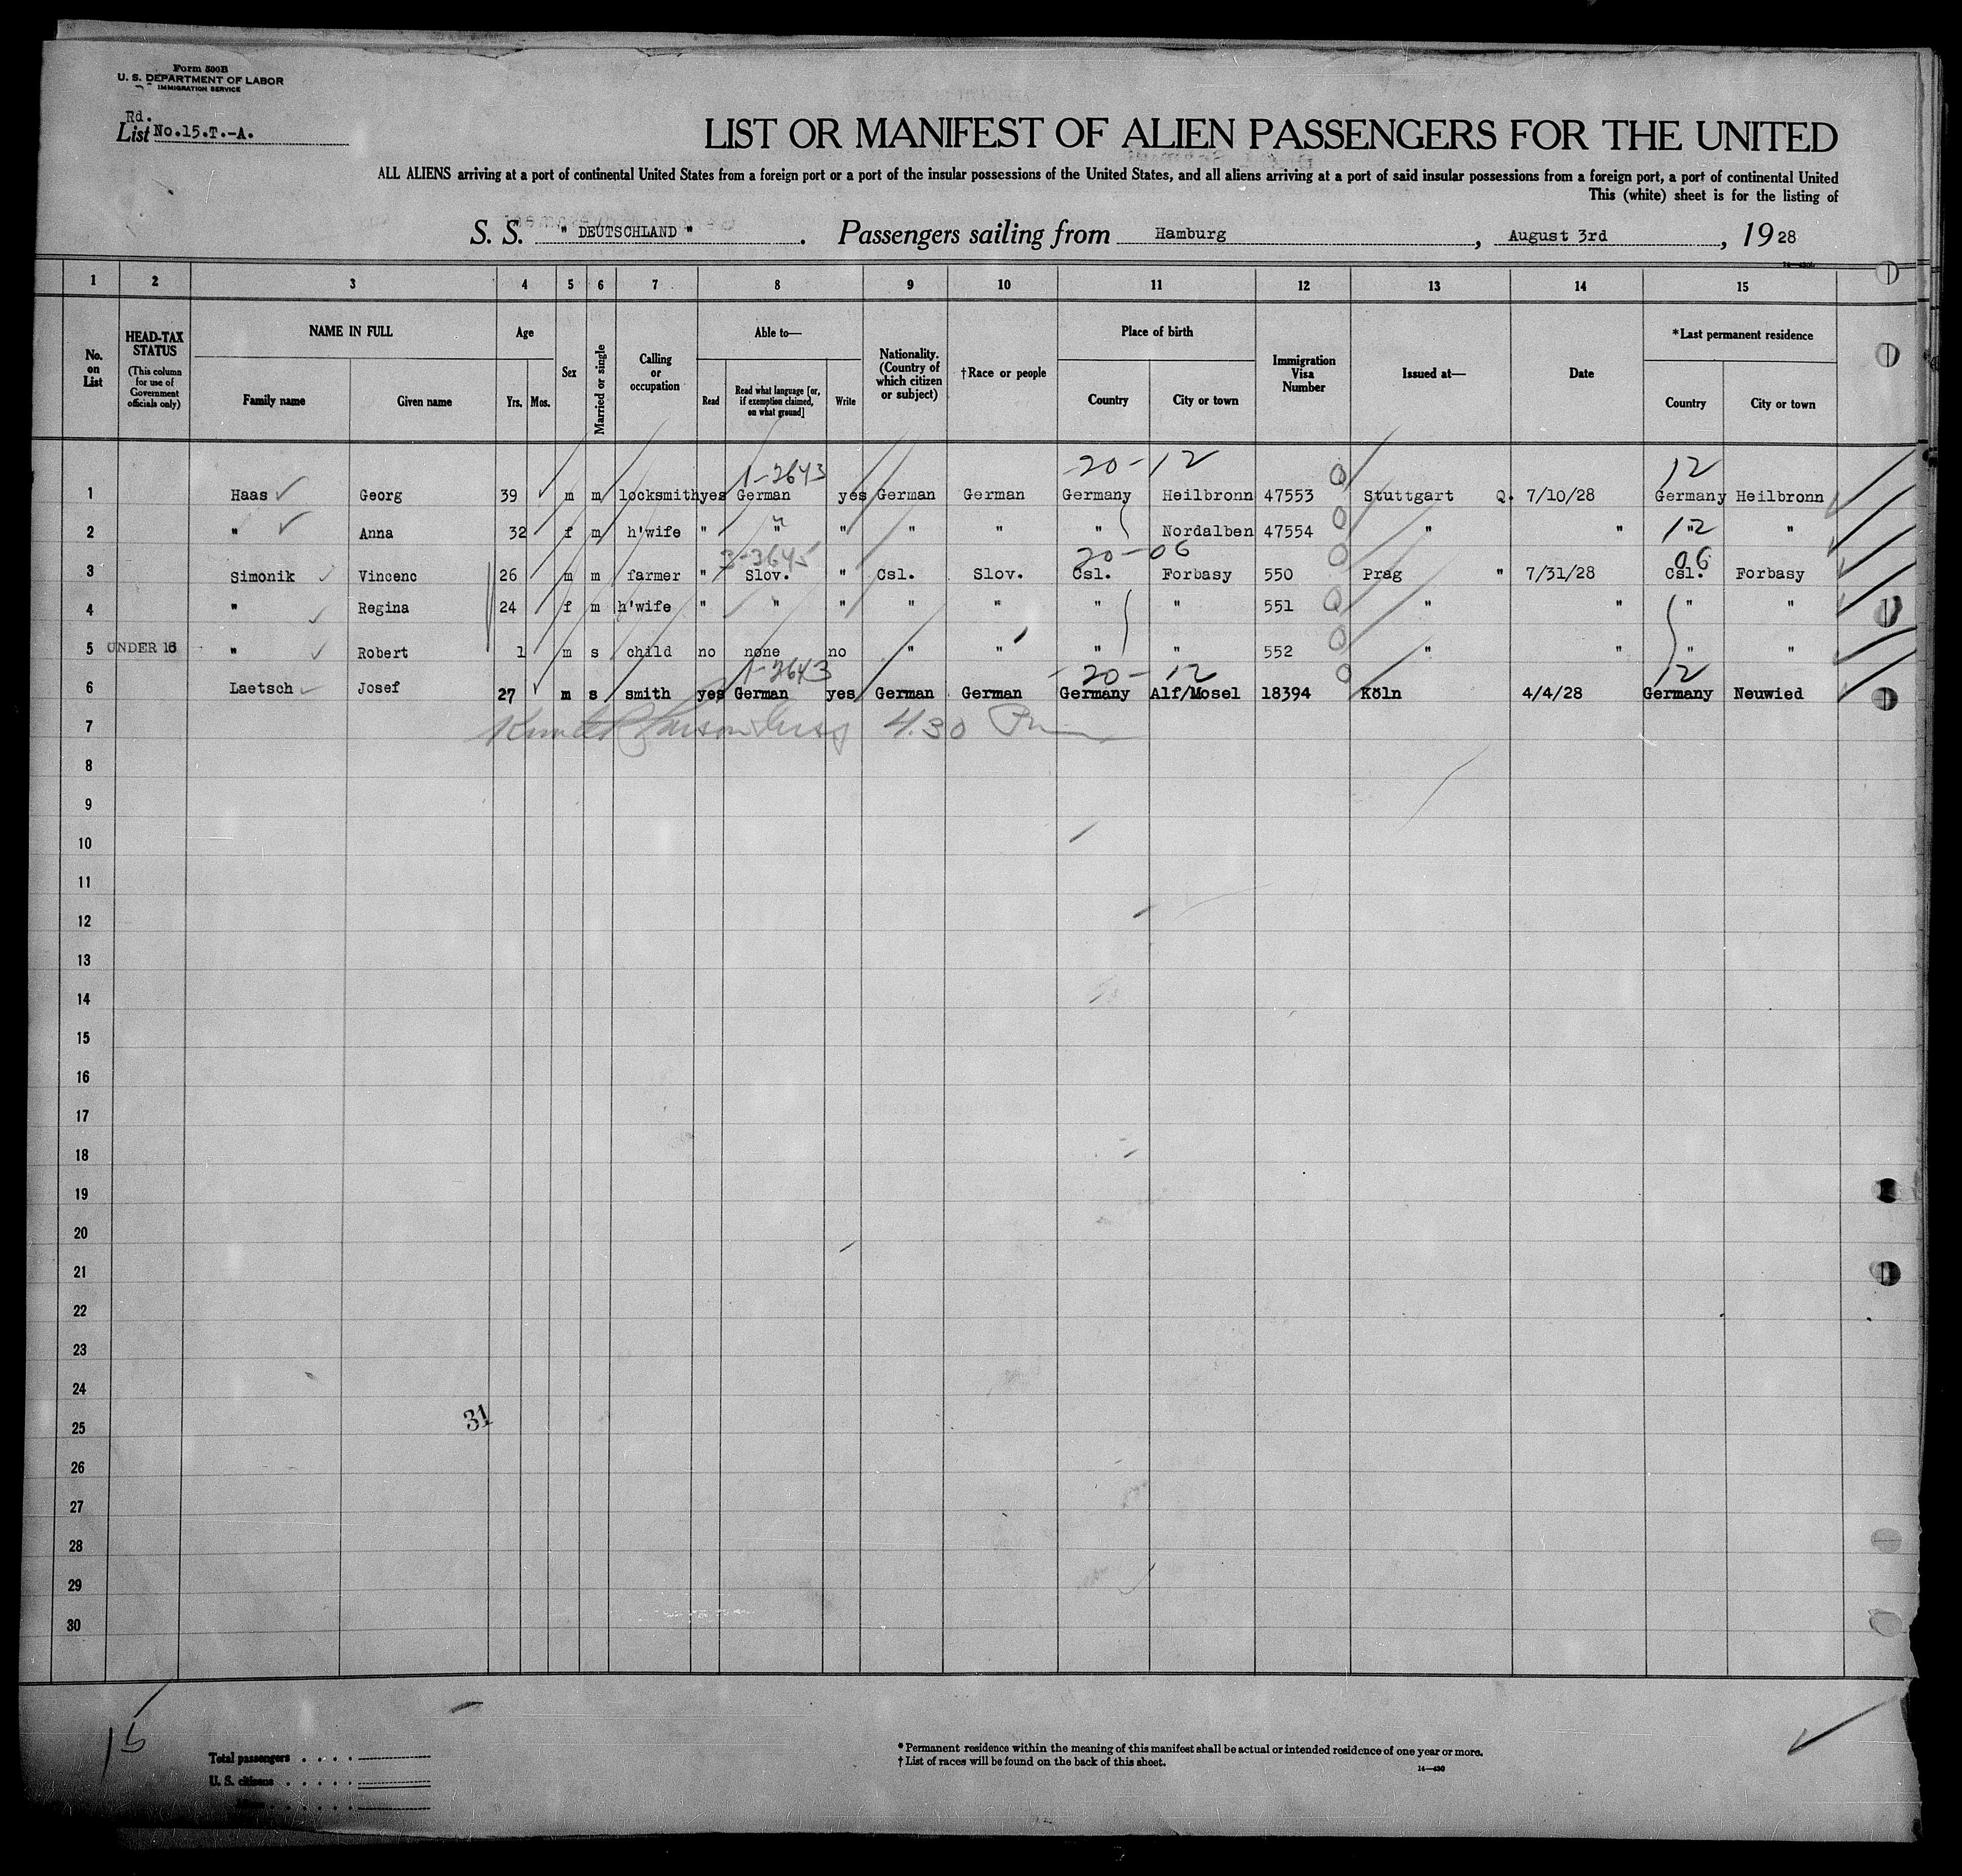 Form 500B
U. S. DEPARTMENT OF LABOR
IMMIGRATION SERVICE
Rd.
List No.15.T.-A.
LIST OR MANIFEST OF ALIEN PASSENGERS FOR THE UNITED
ALL ALIENS arriving at a port of continental United States from a foreign port or a port of the insular possessions of the United States, and all aliens arriving at a port of said insular possessions from a foreign port, a port of continental United
This (white) sheet is for the listing of
S. S. " DEUTSCHLAND " . Passengers sailing from Hamburg , August 3rd , 1928
1 2 3 4 5 6 7 8 9 10 11 12 13 14 15
No. on List
HEAD-TAX STATUS (This column for use of Government officials only)
NAME IN FULL
Family name Given name
Age
Yrs. Mos.
Sex
Married or single
Calling or occupation
Able to—
Read Read what language [or, if exemption claimed, on what ground] Write
Nationality. (Country of which citizen or subject)
†Race or people
Place of birth
Country City or town
Immigration Visa Number
Issued at—
Date
*Last permanent residence
Country City or town
1-2643 20-12 12
1 Haas Georg 39 m m locksmith yes German yes German German Germany Heilbronn 47553 Stuttgart Q. 7/10/28 Germany Heilbronn
2 " Anna 32 f m h'wife " " " " " " Nordalben 47554 " " 12 " "
3-3645 20-06 06
3 Simonik Vincenc 26 m m farmer " Slov. " Csl. Slov. Csl. Forbasy 550 Prag " 7/31/28 Csl. Forbasy
4 " Regina 24 f m h'wife " " " " " " " 551 " " " "
5 UNDER 16 " Robert 1 m s child no none no " " " " 552 " " " "
1-2643 20-12 12
6 Laetsch Josef 27 m s smith yes German yes German German Germany Alf/Mosel 18394 Köln 4/4/28 Germany Neuwied
7 4.30 Pm
8
9
10
11
12
13
14
15
16
17
18
19
20
21
22
23
24
31
25
26
27
28
29
30
15
Total passengers
U. S. citizens
* Permanent residence within the meaning of this manifest shall be actual or intended residence of one year or more.
† List of races will be found on the back of this sheet.
14—430